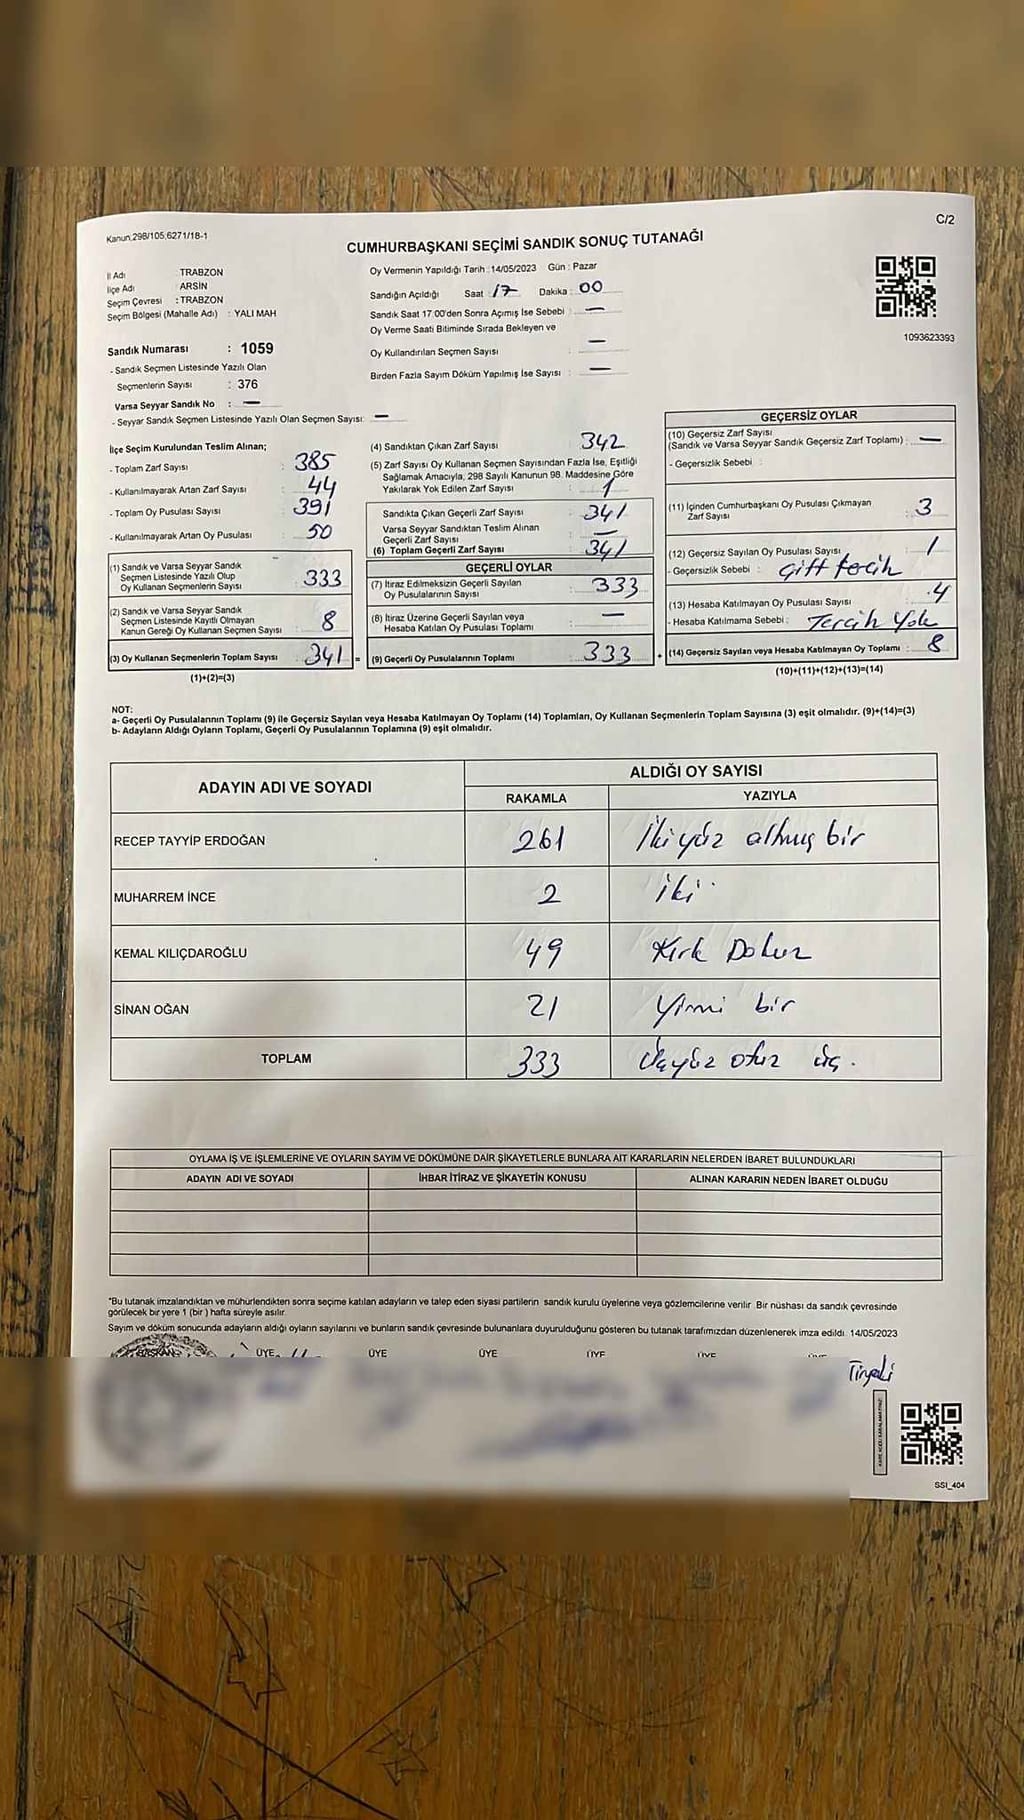 C/2
Kanun,298/105,6271/18-1
CUMHURBAŞKANI SEÇİMİ SANDIK SONUÇ TUTANAĞI
İl Adı : TRABZON
İlçe Adı : ARSİN
Seçim Çevresi : TRABZON
Seçim Bölgesi (Mahalle Adı) : YALI MAH
Sandık Numarası : 1059
- Sandık Seçmen Listesinde Yazılı Olan
Seçmenlerin Sayısı : 376
Varsa Seyyar Sandık No : —
- Seyyar Sandık Seçmen Listesinde Yazılı Olan Seçmen Sayısı: —
Oy Vermenin Yapıldığı Tarih :14/05/2023 Gün : Pazar
Sandığın Açıldığı Saat : 17 Dakika : 00
Sandık Saat 17:00'den Sonra Açımış İse Sebebi : —
Oy Verme Saati Bitiminde Sırada Bekleyen ve
Oy Kullandırılan Seçmen Sayısı : —
Birden Fazla Sayım Döküm Yapılmış İse Sayısı : —
1093623393
İlçe Seçim Kurulundan Teslim Alınan;
- Toplam Zarf Sayısı : 385
- Kullanılmayarak Artan Zarf Sayısı : 44
- Toplam Oy Pusulası Sayısı : 391
- Kullanılmayarak Artan Oy Pusulası : 50
(1) Sandık ve Varsa Seyyar Sandık
Seçmen Listesinde Yazılı Olup
Oy Kullanan Seçmenlerin Sayısı : 333
(2) Sandık ve Varsa Seyyar Sandık
Seçmen Listesinde Kayıtlı Olmayan
Kanun Gereği Oy Kullanan Seçmen Sayısı : 8
(3) Oy Kullanan Seçmenlerin Toplam Sayısı : 341 =
(1)+(2)=(3)
(4) Sandıktan Çıkan Zarf Sayısı : 342
(5) Zarf Sayısı Oy Kullanan Seçmen Sayısından Fazla İse, Eşitliği
Sağlamak Amacıyla, 298 Sayılı Kanunun 98. Maddesine Göre
Yakılarak Yok Edilen Zarf Sayısı : 1
Sandıkta Çıkan Geçerli Zarf Sayısı : 341
Varsa Seyyar Sandıktan Teslim Alınan
Geçerli Zarf Sayısı : —
(6) Toplam Geçerli Zarf Sayısı : 341
GEÇERLİ OYLAR
(7) İtiraz Edilmeksizin Geçerli Sayılan
Oy Pusulalarının Sayısı : 333
(8) İtiraz Üzerine Geçerli Sayılan veya
Hesaba Katılan Oy Pusulası Toplamı : —
(9) Geçerli Oy Pusulalarının Toplamı : 333 +
GEÇERSİZ OYLAR
(10) Geçersiz Zarf Sayısı
(Sandık ve Varsa Seyyar Sandık Geçersiz Zarf Toplamı) : —
- Geçersizlik Sebebi :
(11) İçinden Cumhurbaşkanı Oy Pusulası Çıkmayan
Zarf Sayısı : 3
(12) Geçersiz Sayılan Oy Pusulası Sayısı : 1
- Geçersizlik Sebebi : Çift tercih
(13) Hesaba Katılmayan Oy Pusulası Sayısı : 4
- Hesaba Katılmama Sebebi : Tercih Yok
(14) Geçersiz Sayılan veya Hesaba Katılmayan Oy Toplamı : 8
(10)+(11)+(12)+(13)=(14)
NOT:
a- Geçerli Oy Pusulalarının Toplamı (9) ile Geçersiz Sayılan veya Hesaba Katılmayan Oy Toplamı (14) Toplamları, Oy Kullanan Seçmenlerin Toplam Sayısına (3) eşit olmalıdır. (9)+(14)=(3)
b- Adayların Aldığı Oyların Toplamı, Geçerli Oy Pusulalarının Toplamına (9) eşit olmalıdır.
ADAYIN ADI VE SOYADI ALDIĞI OY SAYISI
RAKAMLA YAZIYLA
RECEP TAYYİP ERDOĞAN 261 İki yüz altmış bir
MUHARREM İNCE 2 iki
KEMAL KILIÇDAROĞLU 49 Kırk Dokuz
SİNAN OĞAN 21 Yirmi bir
TOPLAM 333 Üçyüz otuz üç.
OYLAMA İŞ VE İŞLEMLERİNE VE OYLARIN SAYIM VE DÖKÜMÜNE DAİR ŞİKAYETLERLE BUNLARA AİT KARARLARIN NELERDEN İBARET BULUNDUKLARI
ADAYIN ADI VE SOYADI İHBAR İTİRAZ VE ŞİKAYETİN KONUSU ALINAN KARARIN NEDEN İBARET OLDUĞU
"Bu tutanak imzalandıktan ve mühürlendikten sonra seçime katılan adayların ve talep eden siyasi partilerin sandık kurulu üyelerine veya gözlemcilerine verilir. Bir nüshası da sandık çevresinde
görülecek bir yere 1 (bir) hafta süreyle asılır.
Sayım ve döküm sonucunda adayların aldığı oyların sayılarını ve bunların sandık çevresinde bulunanlara duyurulduğunu gösteren bu tutanak tarafımızdan düzenlenerek imza edildi. 14/05/2023
BAŞKAN ÜYE ÜYE ÜYE ÜYE ÜYE
Tiryaki
SSI_404